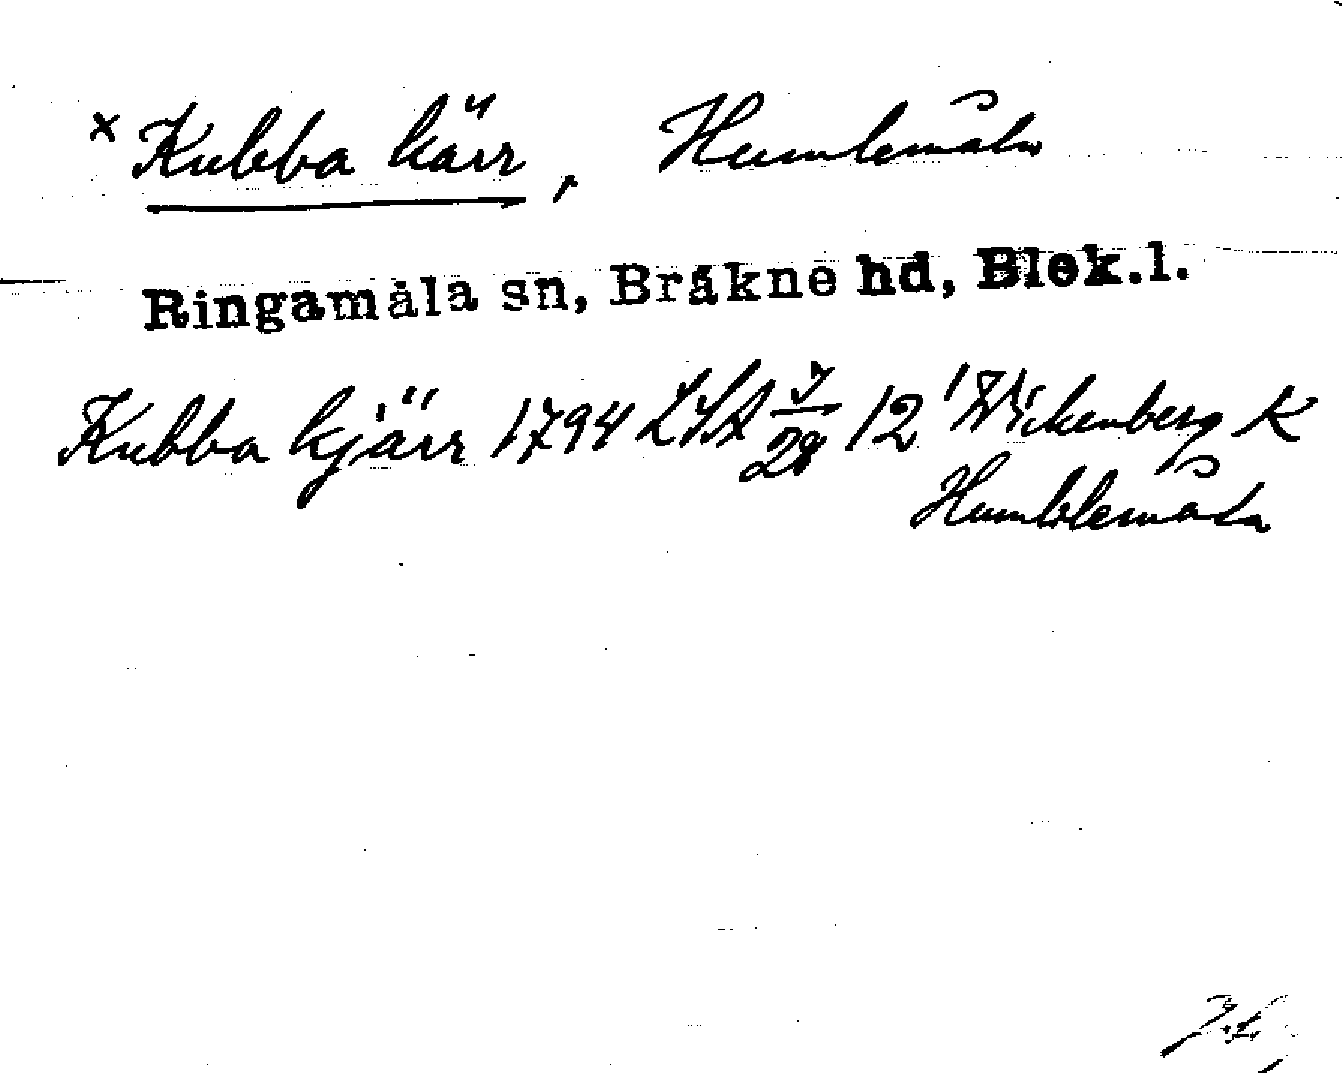 x Kubba kärr, Humlemåla
Ringamåla sn, Bräkne hd, Blek.l.
Kubba kjärr 1794 LSA 12 Wickenberg K
Humblemåla